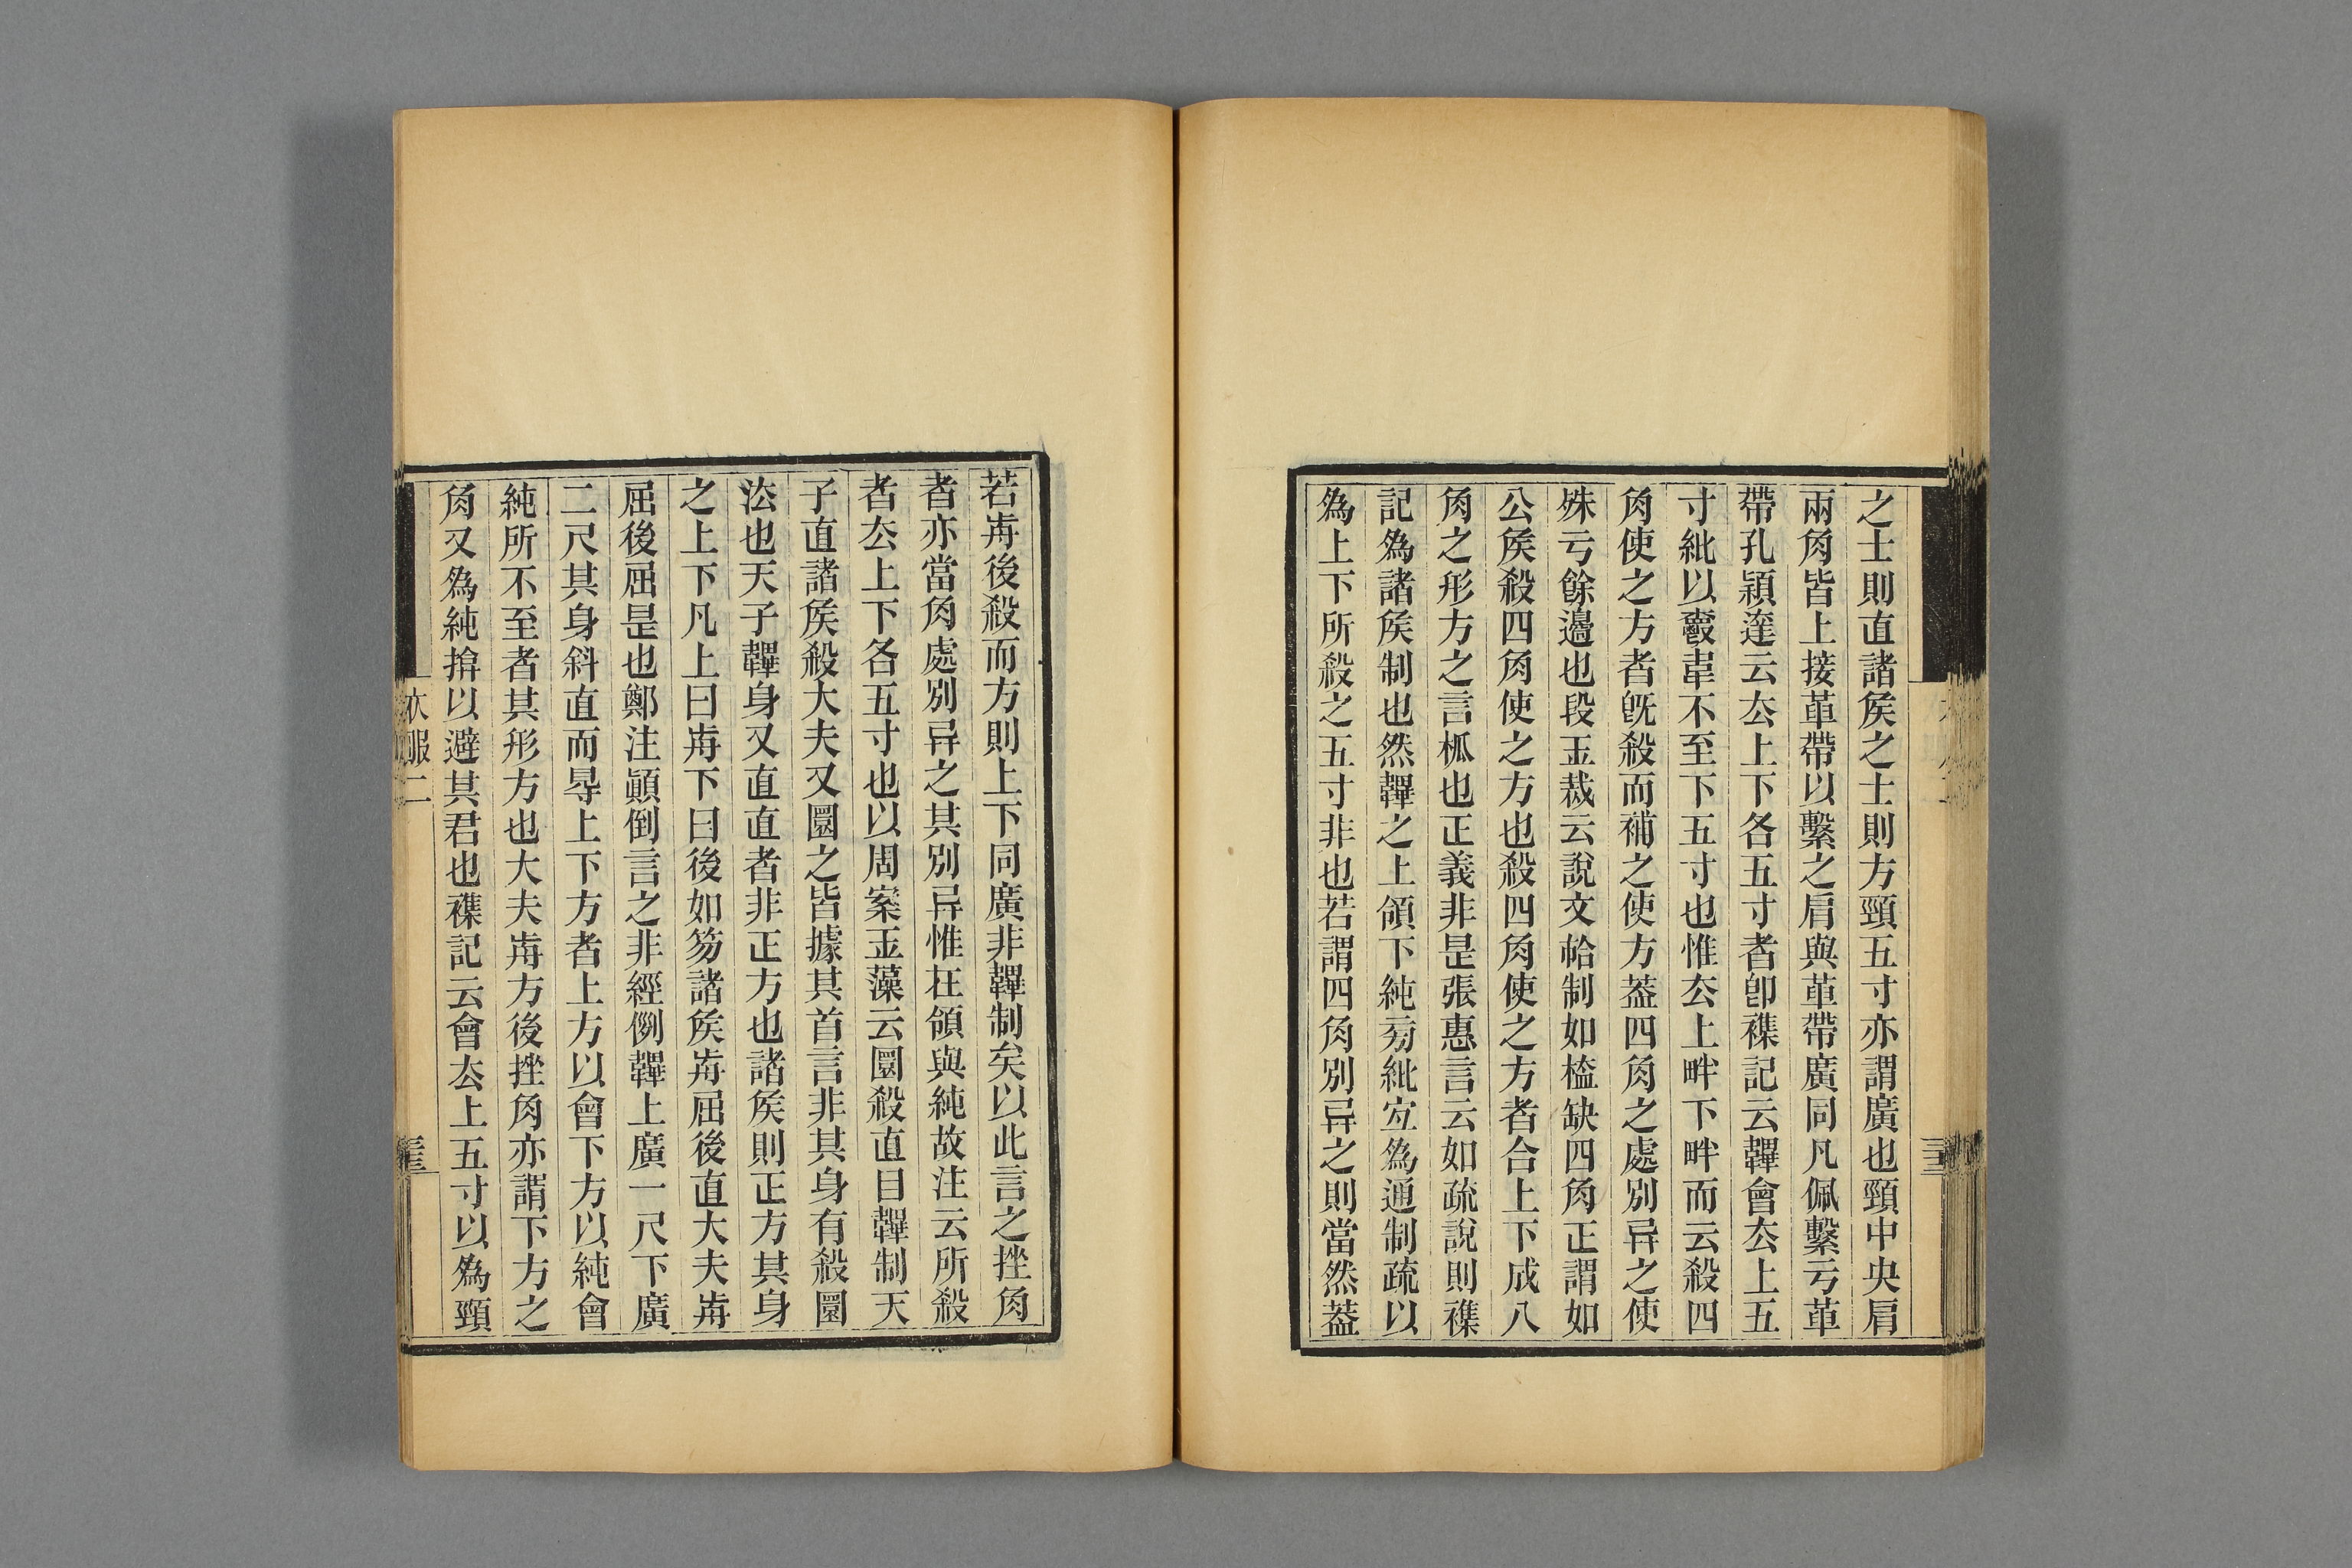 之士則直諸矦之士則方頸五寸亦謂廣也頸中央肩
兩𧢲皆上接革帶以繫之肩與革帶廣同凡佩繫亏革
帶孔穎達云厺上下各五寸者卽襍記云韠會厺上五
寸紕以爵韋不至下五寸也惟厺上畔下畔而云殺四
𧢲使之方者旣殺而補之使方葢四𧢲之處別异之使
殊亏餘邊也段玉裁云說文帢制如榼缺四𧢲正謂如
公矦殺四𧢲使之方也殺四𧢲使之方者合上下成八
𧢲之形方之言柧也正義非是張惠言云如疏說則襍
記爲諸矦制也然韠之上領下純㫄紕宐爲通制疏以
爲上下所殺之五寸非也若謂四𧢲別异之則當然葢
若歬後殺而方則上下同廣非韠制矣以此言之挫𧢲
者亦當𧢲處別异之其別异惟在領與純故注云所殺
者厺上下各五寸也以周案玉藻云圜殺直目韠制天
子直諸矦殺大夫又圜之皆據其首言非其身有殺圜
法也天子韠身又直直者非正方也諸矦則正方其身
之上下凡上曰歬下曰後如笏諸矦歬屈後直大夫歬
屈後屈是也鄭注顚倒言之非經例韠上廣一尺下廣
二尺其身斜直而㝵上下方者上方以會下方以純會
純所不至者其形方也大夫歬方後挫𧢲亦謂下方之
𧢲又爲純揜以避其君也襍記云會厺上五寸以爲頸
衣服二